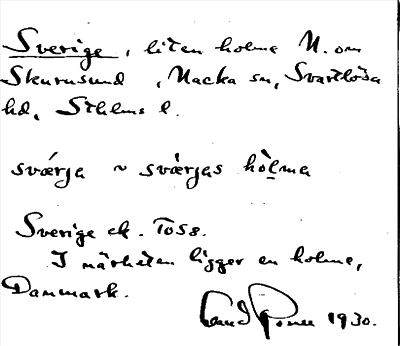 Sverige, liten holme N. om
Skurusund, Nacka sn, Svartlösa
hd, Sthlms l.
svǽrja ~ svǽrjas hòlma
Sverige ek. T058.
I närheten ligger en holme,
Danmark.
1930.